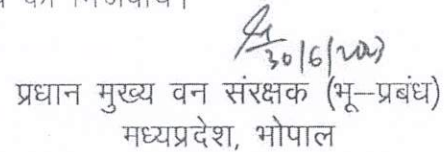 30/6/2023
प्रधान मुख्य वन संरक्षक (भू–प्रबंध)
मध्यप्रदेश, भोपाल